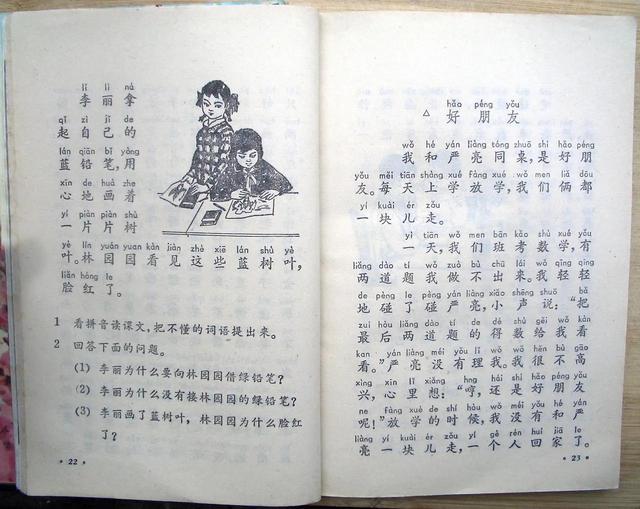 lǐ lì ná
李丽拿
qǐ zì jǐ de
起自己的
lán qiān bǐ yàng
蓝铅笔，用
xīn de huà zhe
心地画着
yí piàn piàn shù
一片片树
yè lín yuán yuan kàn jiàn zhè xiē lán shù yè
叶。林园园看见这些蓝树叶，
liǎn hóng le
脸红了。
1 看拼音读课文，把不懂的词语提出来。
2 回答下面的问题。
(1) 李丽为什么要向林园园借绿铅笔？
(2) 李丽为什么没有接林园园的绿铅笔？
(3) 李丽画了蓝树叶，林园园为什么脸红
了？
· 22 ·
hǎo péng yǒu
△ 好朋友
wǒ hé yán liàng tóng zhuō shì hǎo péng
我和严亮同桌，是好朋
yǒu měi tiān shàng xué fàng xué wǒ men liǎ dōu
友。每天上学放学，我们俩都
yí kuài ér zǒu
一块儿走。
yì tiān wǒ men bān kǎo shù xué yǒu
一天，我们班考数学，有
liǎng dào tí wǒ zuò bù chū lái wǒ qīng qīng
两道题我做不出来。我轻轻
de pèng le pèng yán liàng xiǎo shēng shuō bǎ
地碰了碰严亮，小声说：“把
zuì hòu liǎng dào tí de dé shù gěi wǒ kàn
最后两道题的得数给我看
kan yán liàng méi yǒu lǐ wǒ wǒ hěn bù gāo
看。”严亮没有理我。我很不高
xìng xīn lǐ xiǎng hng hái shì hǎo péng yǒu
兴，心里想：“哼，还是好朋友
ne fàng xué de shí hòu wǒ méi yǒu hé yán
呢！”放学的时候，我没有和严
liàng yí kuài ér zǒu yí gè rén huí jiā le
亮一块儿走，一个人回家了。
· 23 ·